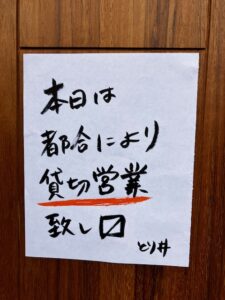 本日は
都合により
貸切営業
致し〼
とり井